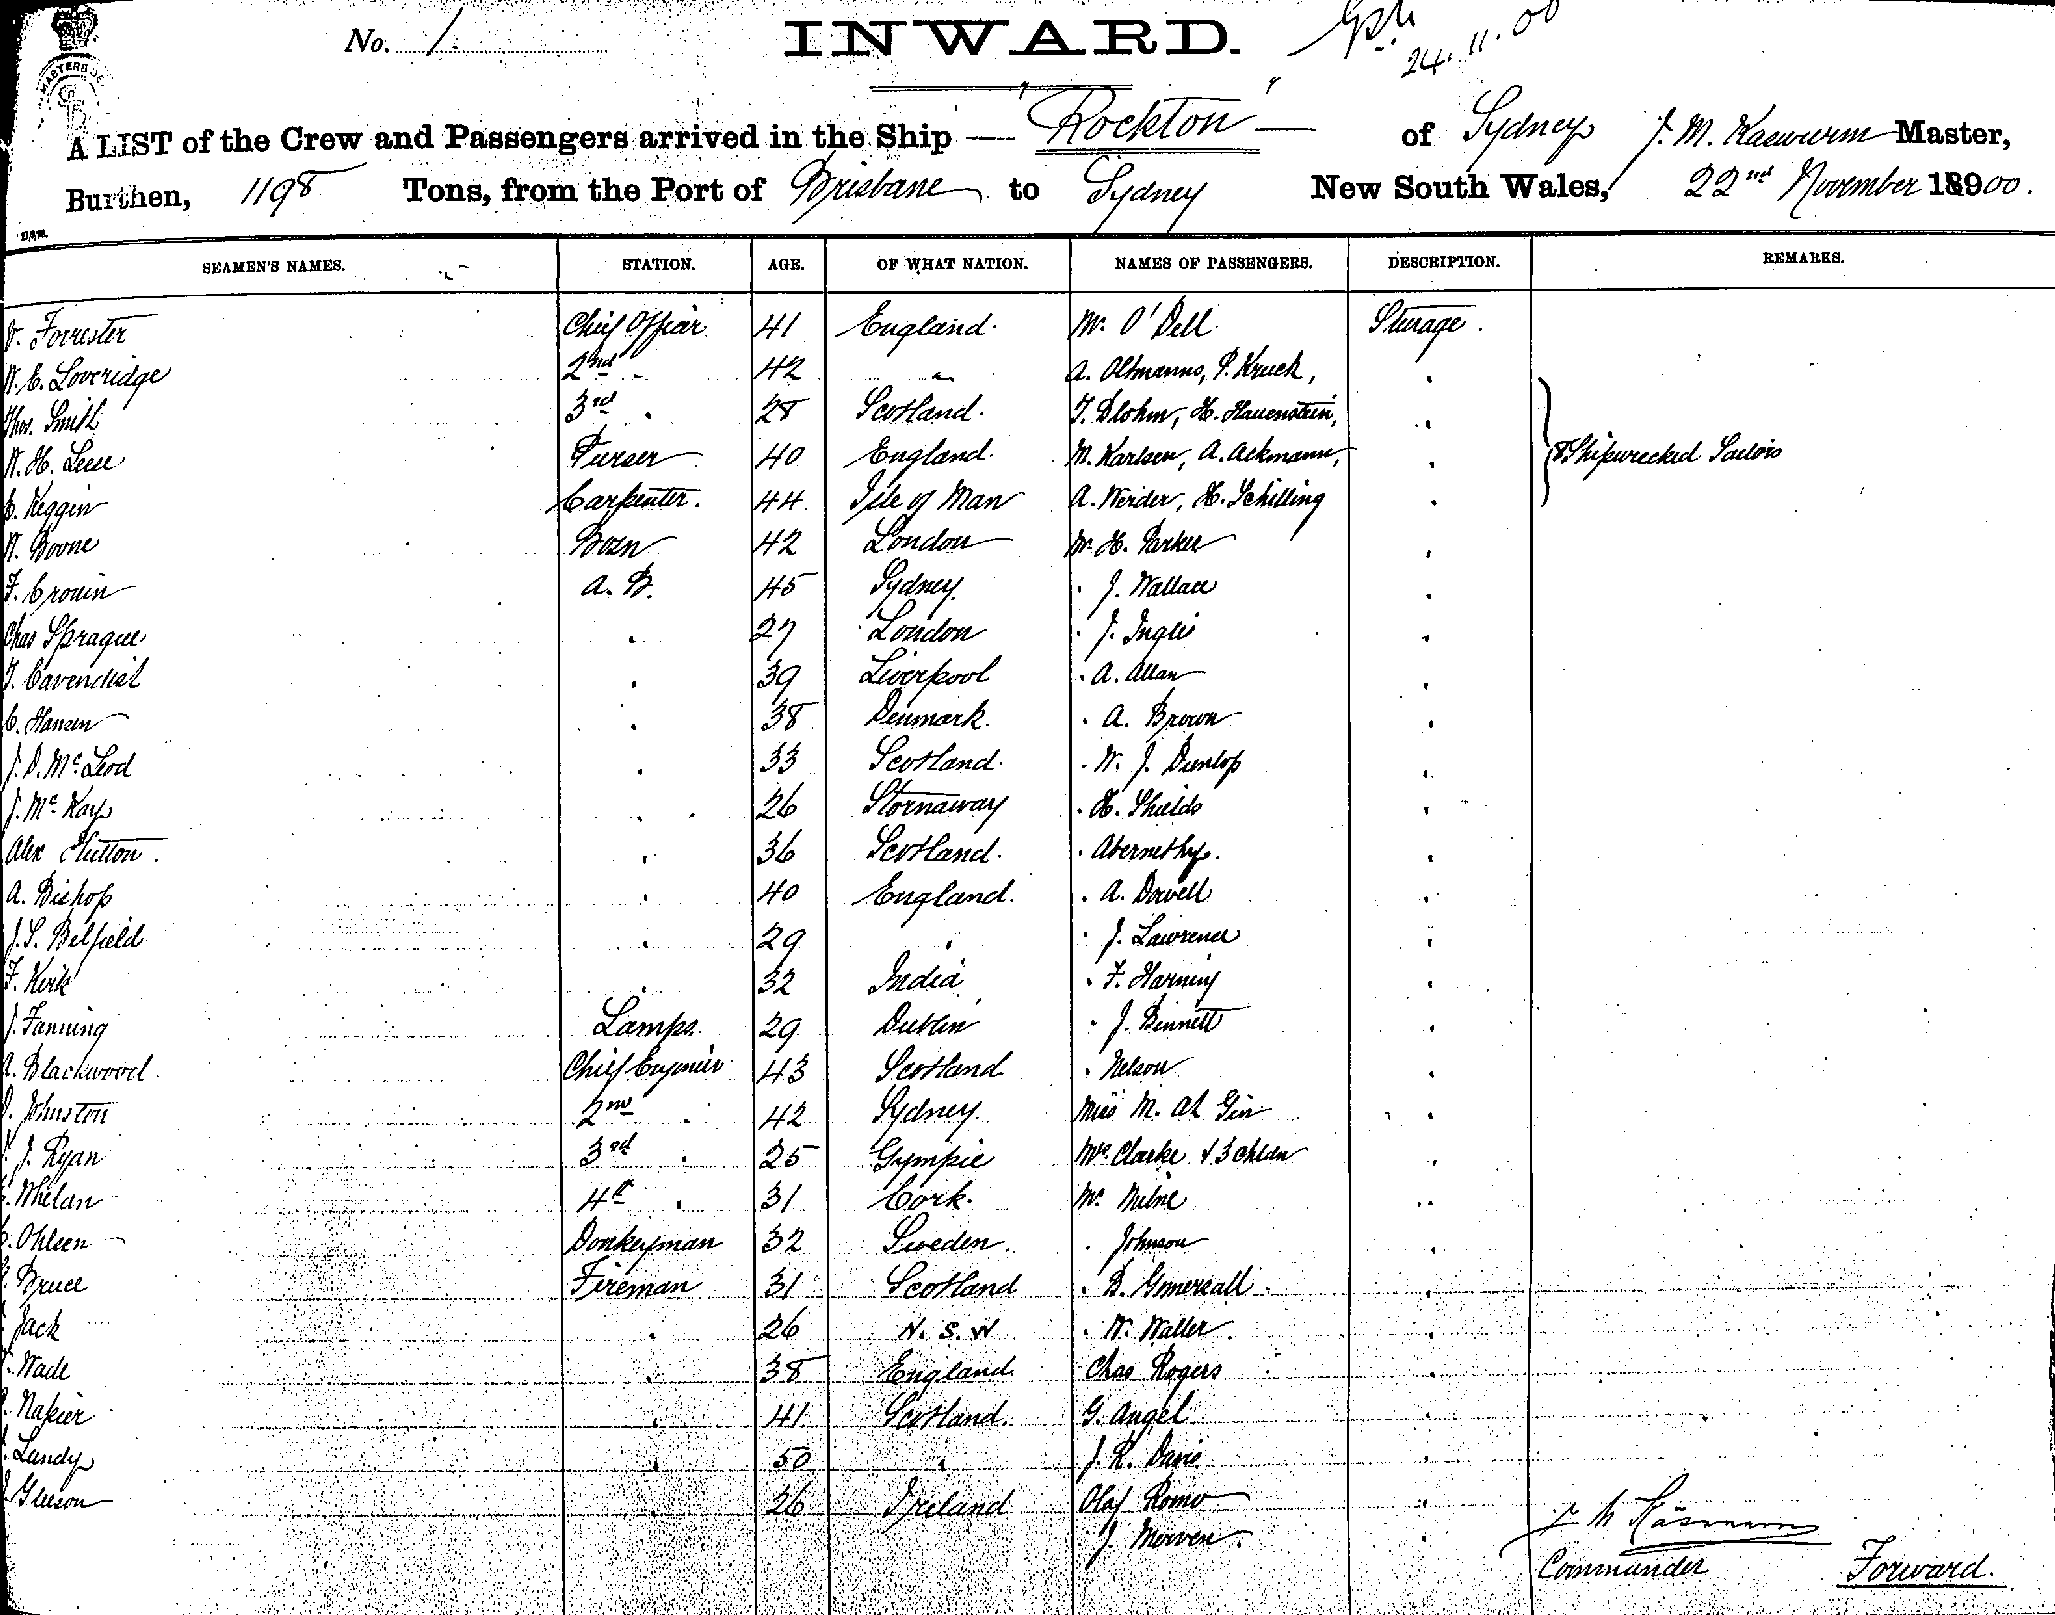 No. 1 INWARD.
24.11.00
A LIST of the Crew and Passengers arrived in the Ship — "Rockton" — of Sydney J. M. Kaewurm Master,
Burthen, 1198 Tons, from the Port of Brisbane to Sydney New South Wales, 22nd November 18900.
SEAMEN'S NAMES. STATION. AGE. OF WHAT NATION. NAMES OF PASSENGERS. DESCRIPTION. REMARKS.
Forrester Chief Officer 41 England. Mr. O'Dell Sturage.
W. E. Loveridge 2nd " 42 " A. Oltmanns, P. Kruck, "
Thos. Smith 3rd " 28 Scotland. H. Hauenstein, "
W. H. Leese Purser 40 England. M. Karlsen, A. Ackmann, " 8 Shipwrecked Sailors
C. Keggin Carpenter. 44 Isle of Man A. Werder, H. Schilling "
W. Boone Bosn 42 London Mr. H. Parker "
F. Cronin A. B. 45 Sydney. " J. Wallace "
Chas Sprague " 27 London " J. Inglis "
Cavendish " 39 Liverpool " A. Allan "
C. Hansen " 38 Denmark. " A. Brown "
J. D. McLeod " 33 Scotland. " W. J. Dunlop "
J. McKay " 26 Stornaway " H. Shields "
Alex Hutton. " 36 Scotland. " Abernethy. "
A. Bishop " 40 England. " A. Dowell "
J. S. Belfield " 29 " " J. Lawrence "
F. Kirk " 32 India " F. Harning "
J. Fanning Lamps. 29 Dublin " J. Bennett "
A. Blackwood. Chief Engineer 43 Scotland " Nelson "
Johnston 2nd " 42 Sydney. Miss M. Ah Gin "
J. Ryan 3rd " 25 Gympie Mrs. Clarke & 3 chldn "
Whelan 4th " 31 Cork. Mr. Milne "
Ohleen Donkeyman 32 Sweden. " Johnson "
Bruce Fireman 31 Scotland " B. Gomersall. "
Jack " 26 N. S. W " W. Waller. "
Wade " 38 England. Chas Rogers "
Napier " 41 Scotland. G. Angel "
Lundy " 50 " J. R. Davis "
Gleeson " 26 Ireland Olaf Romo "
J. Morven.
Commander Forward.